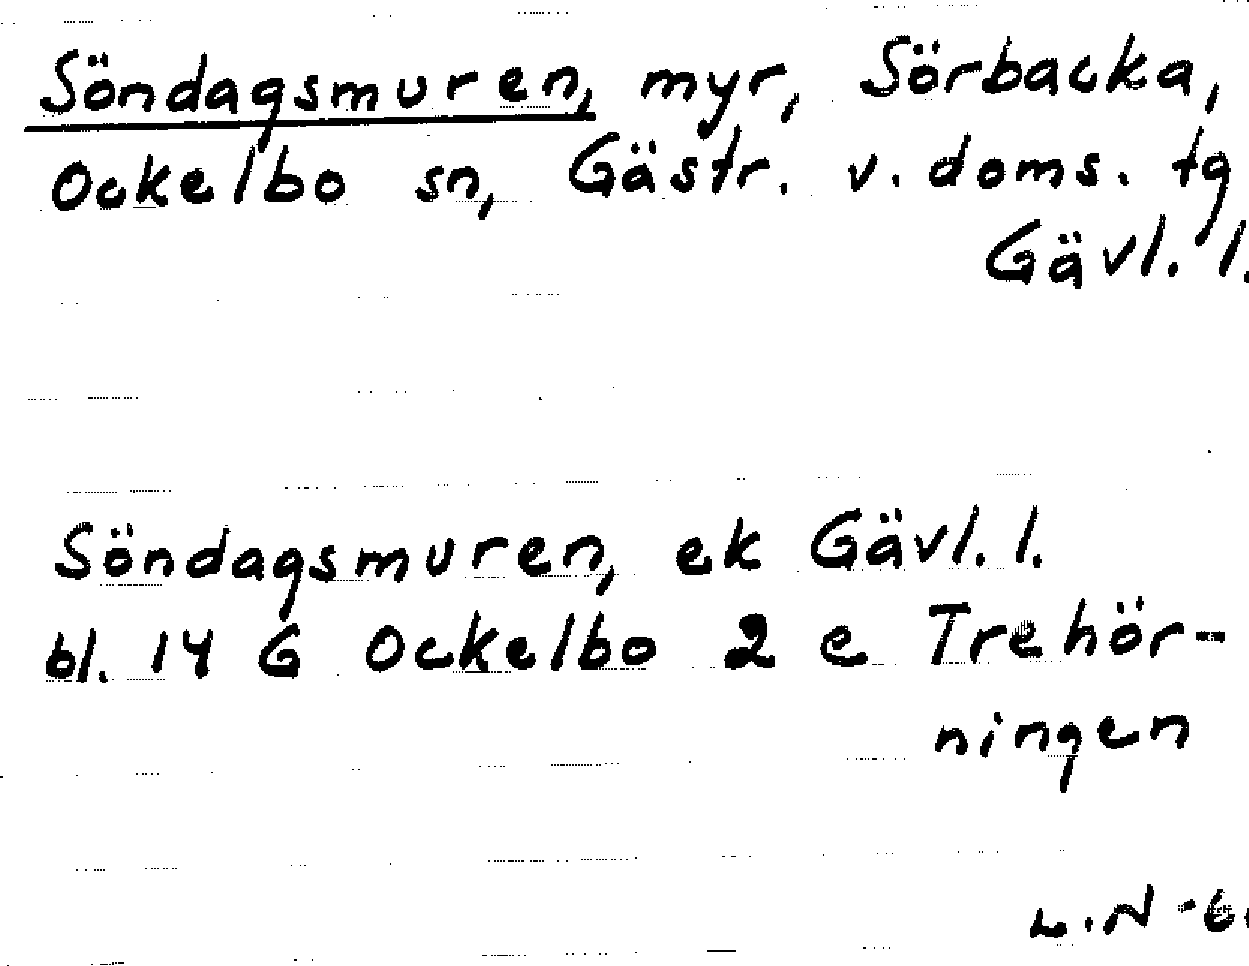 Söndagsmuren, myr, Sörbacka,
Ockelbo sn, Gästr. v. doms. tg
Gävl. l.
Söndagsmuren, ek Gävl. l.
bl. 14 G Ockelbo 2 e Trehör-
ningen
L.N